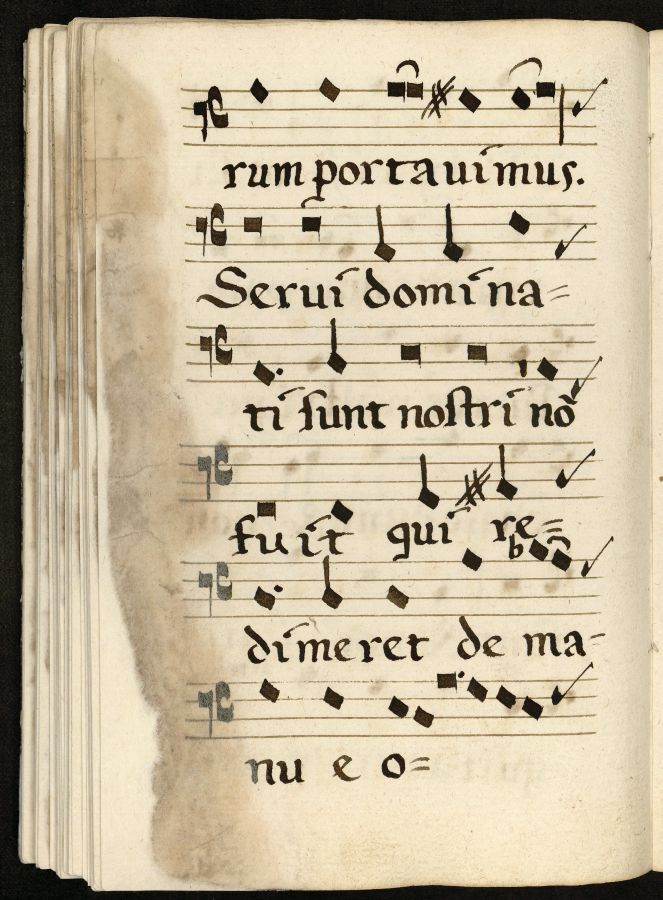 rum portauimus.
Serui domina=
ti sunt nostri nõ
fuit qui re=
dimeret de ma-
nu e o=